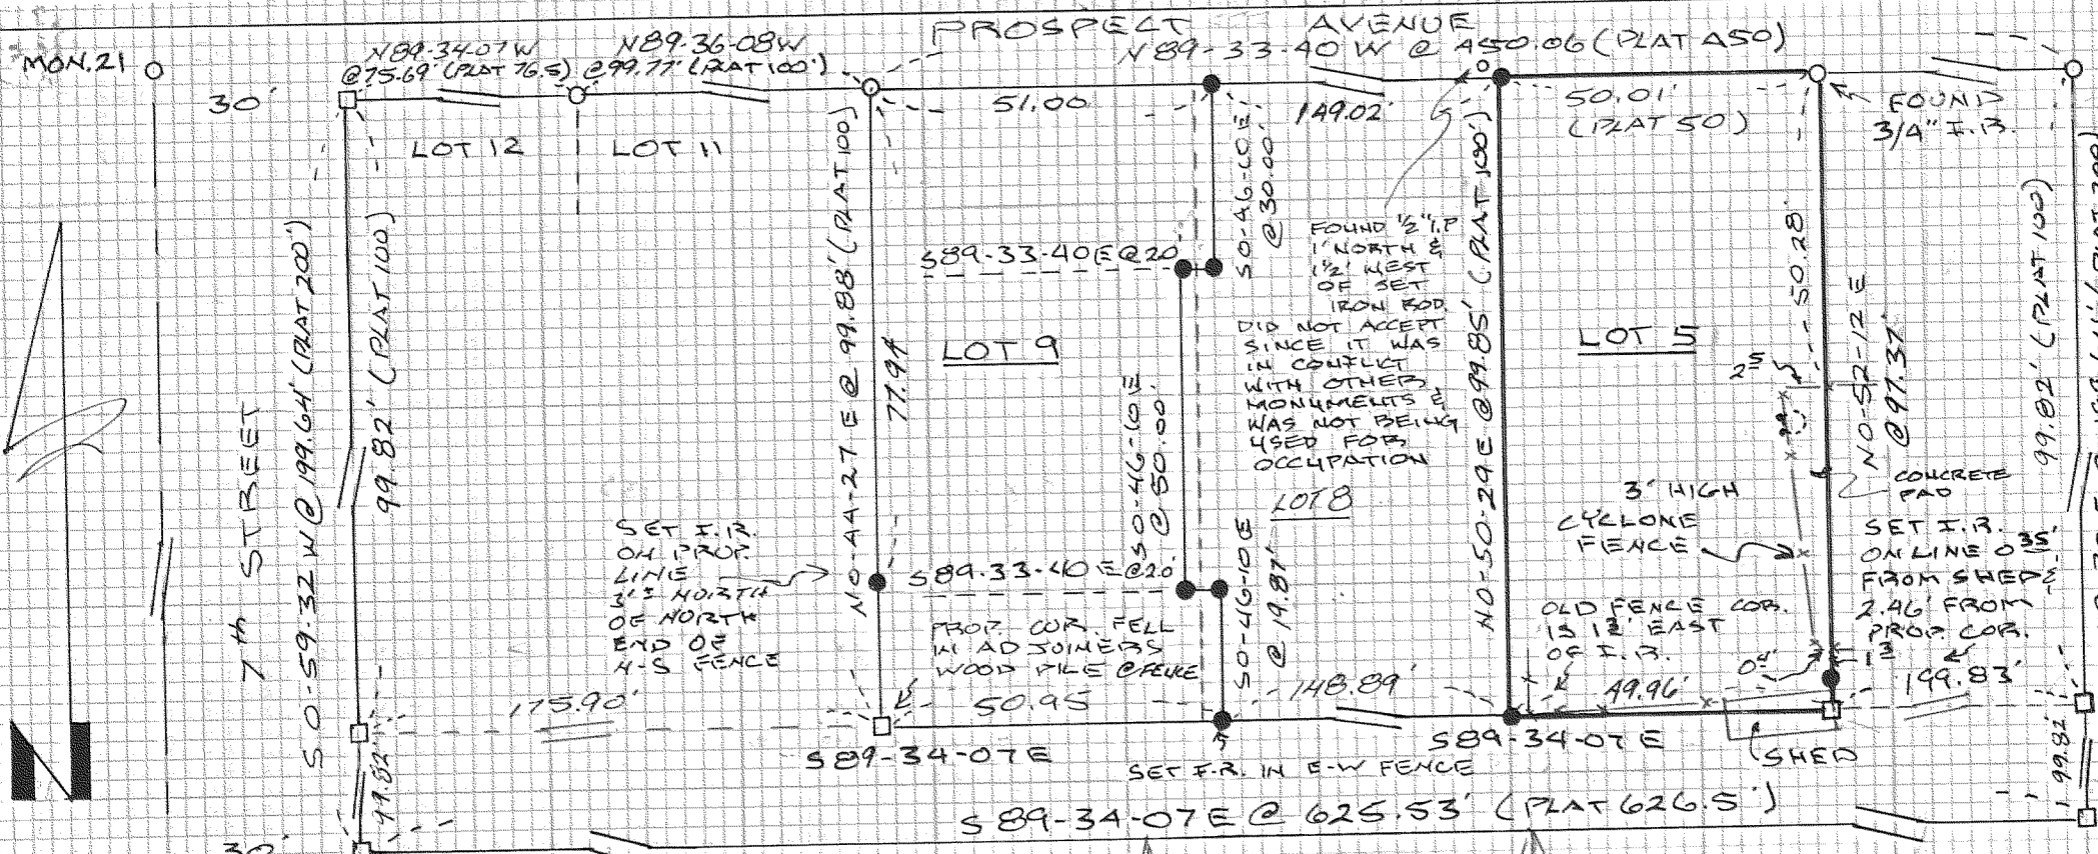 PROSPECT AVENUE
MON.21
N89-34-07W
@75.69' (PLAT 76.5)
N89-36-08W
@99.77' (PLAT 100')
N89-33-40W @ 450.06 (PLAT 450)
30'
51.00
149.02'
50.01'
(PLAT 50)
FOUND
3/4" I.R.
LOT 12
LOT 11
7th STREET
S0-59-32W @ 199.64' (PLAT 200')
99.82' (PLAT 100')
N0-44-27E @ 99.88' (PLAT 100)
77.94
S89-33-40E @ 20'
S0-46-10E
@ 30.00'
LOT 9
S0-46-10E
@ 50.00'
FOUND 1/2" I.P
1' NORTH &
1 1/2' WEST
OF SET
IRON ROD.
DID NOT ACCEPT
SINCE IT WAS
IN CONFLICT
WITH OTHER
MONUMENTS &
WAS NOT BEING
USED FOR
OCCUPATION
LOT 8
N0-50-29E @ 99.85' (PLAT 100')
LOT 5
50.28'
2⁵
N0-52-12E
@ 97.37'
99.82' (PLAT 100')
CONCRETE
PAD
3' HIGH
CYCLONE
FENCE
SET I.R.
ON LINE 0³⁵'
FROM SHED &
2.46' FROM
PROP. COR.
SET I.R.
ON PROP.
LINE
NORTH
OF NORTH
END OF
N-S FENCE
S89-33-40E @ 20'
PROP. COR. FELL
IN ADJOINERS
WOOD PILE @ FENCE
S0-46-10E
@ 19.87'
OLD FENCE COR.
IS EAST
OF I.R.
0⁴'
1³
175.90'
50.95
148.89'
49.96'
199.83'
S89-34-07E
S89-34-07E
SHED
SET I.R. IN E-W FENCE
99.82'
99.82'
S89-34-07E @ 625.53' (PLAT 626.5')
30'
N